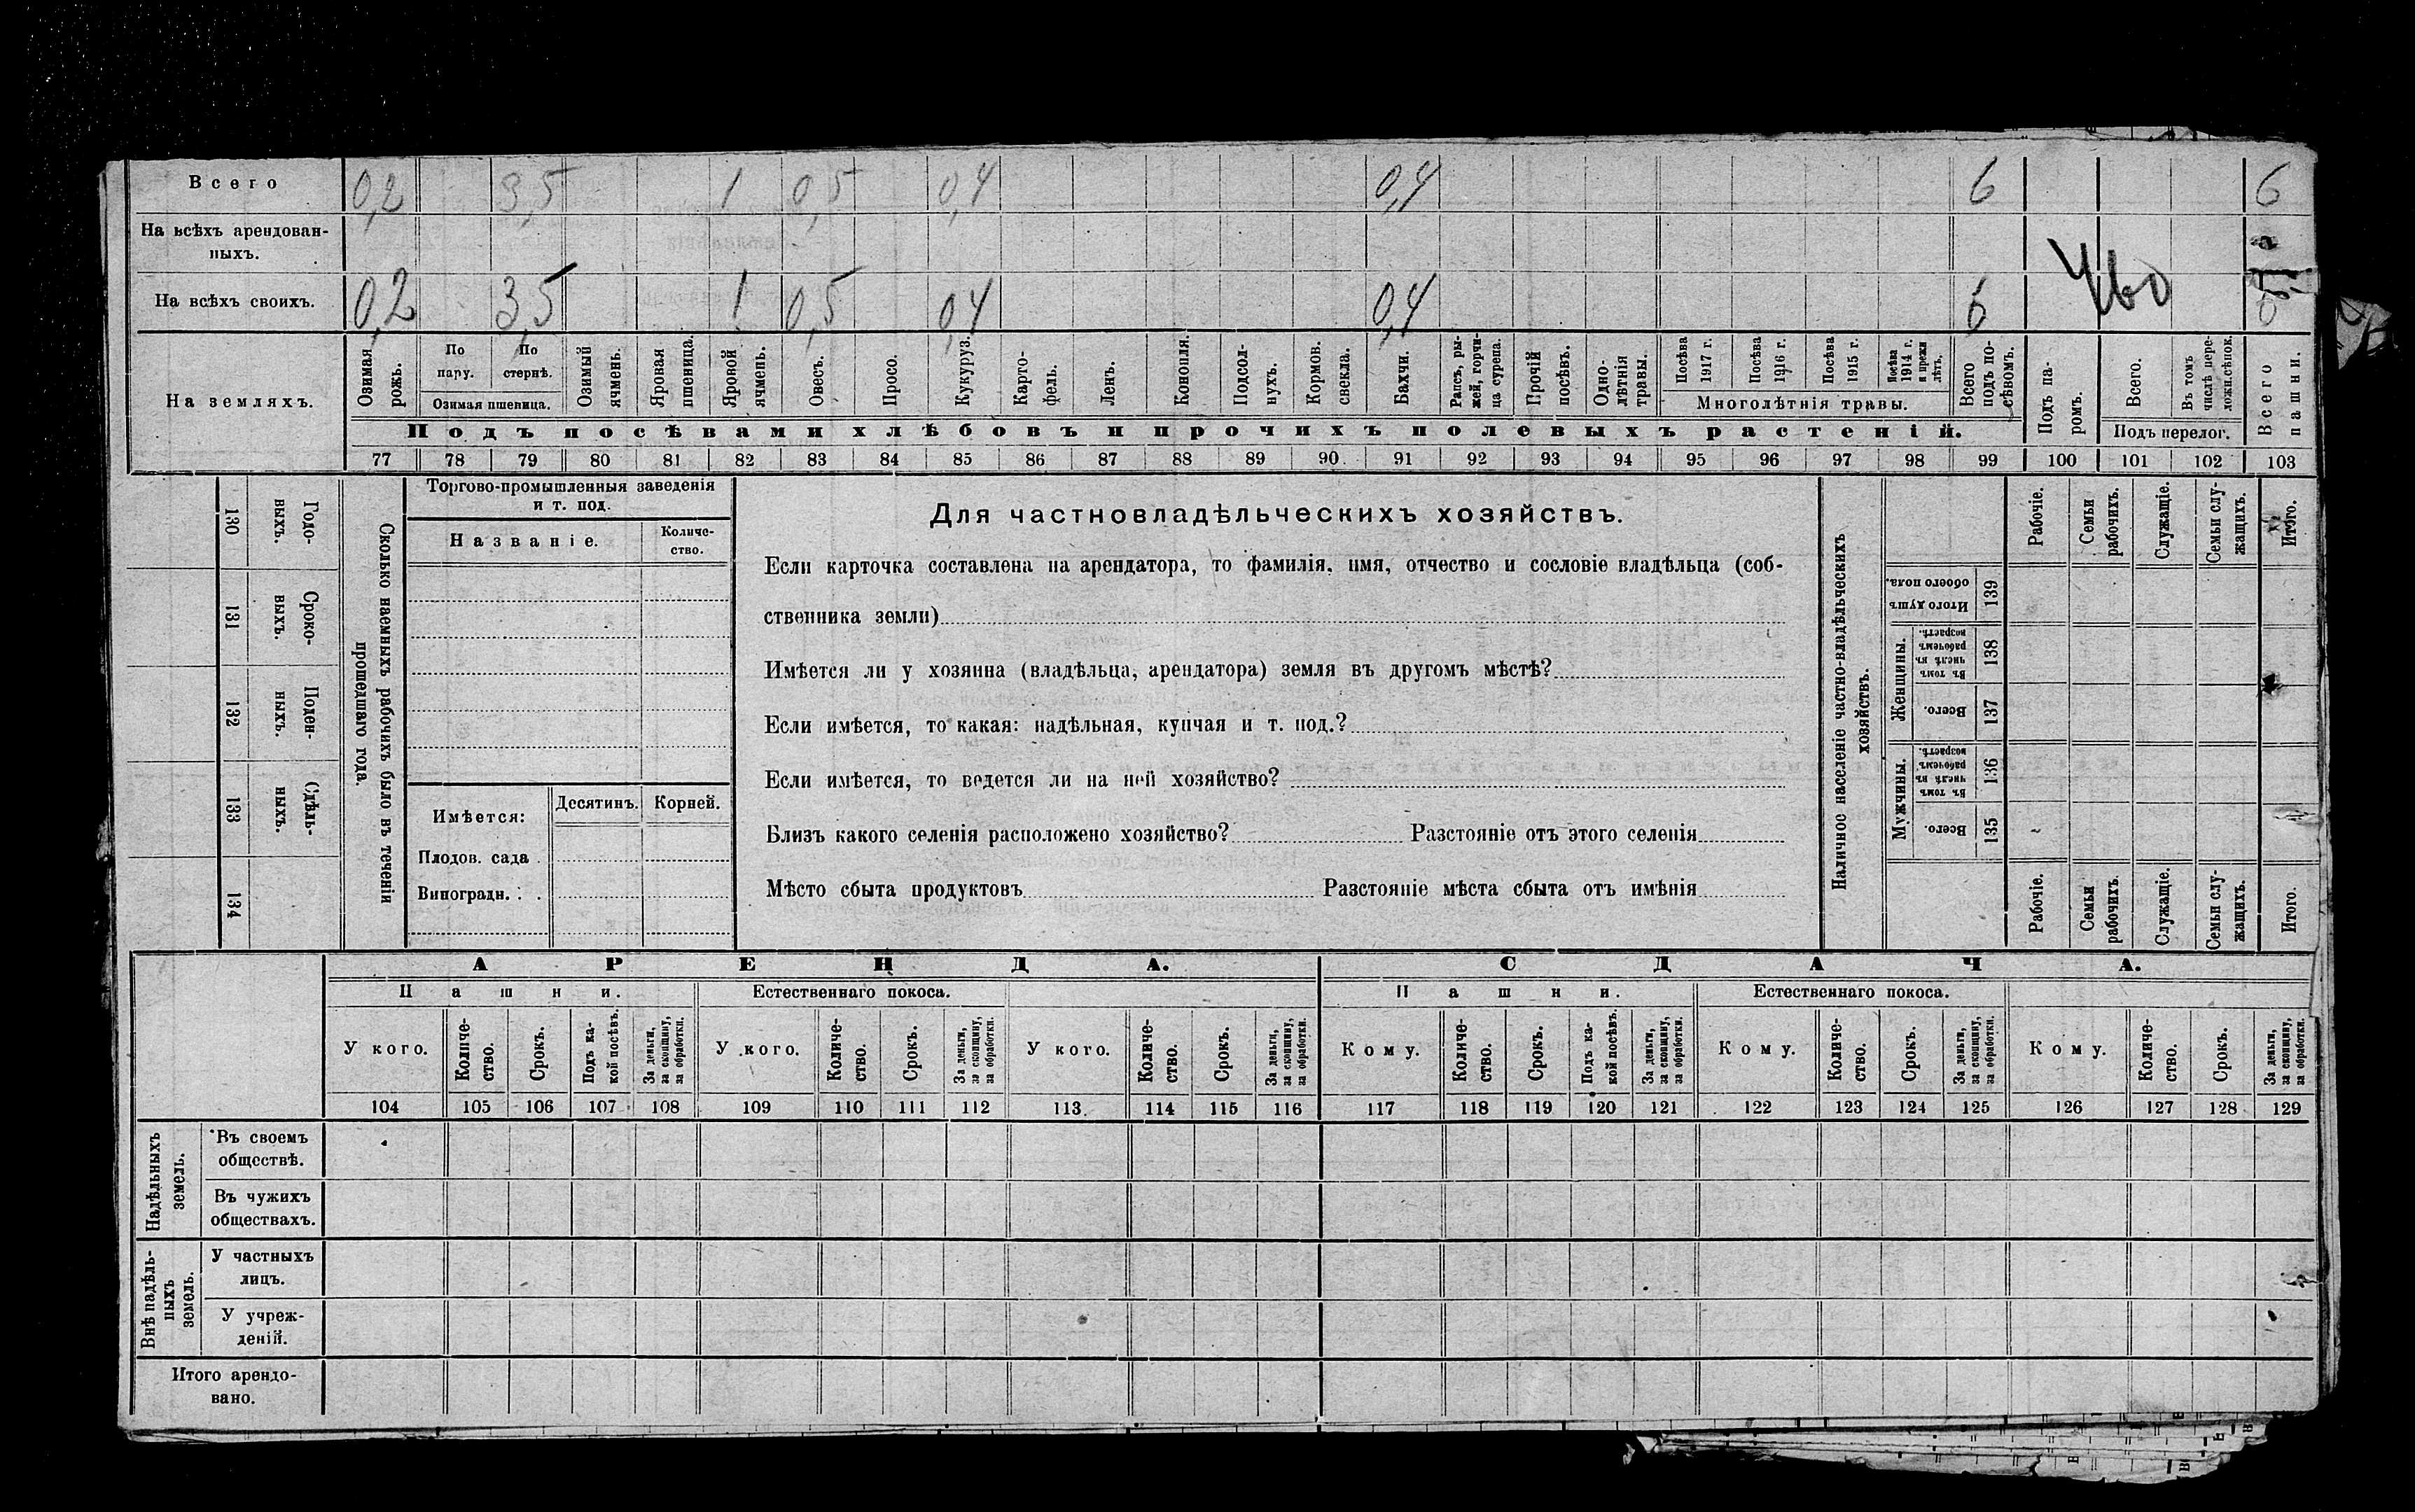 Всего 0,2 3,5 1 0,5 0,4 0,4 6 6
На всѣхъ арендован-
ныхъ.
На всѣхъ своихъ. 0,2 3,5 1 0,5 0,4 0,4 6
На земляхъ.
Озимая рожь.
По пару.
По стернѣ.
Озимая пшеница.
Озимый ячмень.
Яровая пшеница.
Яровой ячмень.
Овесъ.
Просо.
Кукуруз.
Карто-
фель.
Ленъ.
Конопля.
Подсол-
нухъ.
Кормов. свекла.
Бахчи.
Рапсъ, ры-
жей, горчи-
ца сурепа.
Прочій посѣвъ.
Одно-
лѣтнія травы.
Посѣва 1917 г.
Посѣва 1916 г.
Посѣва 1915 г.
Посѣва 1914 г. и прежн лѣтъ.
Многолѣтнія травы.
Всего подъ по-
сѣвомъ.
Подъ па-
ромъ.
Всего.
Въ томъ числѣ пере-
ложн.сѣнок.
Подъ перелог.
Всего пашни.
Подъ посѣвами хлѣбовъ и прочихъ полевыхъ растеній.
77 78 79 80 81 82 83 84 85 86 87 88 89 90 91 92 93 94 95 96 97 98 99 100 101 102 103
130 Годо-
выхъ.
131 Сроко-
выхъ.
132 Поден-
ныхъ.
133 Сдѣль-
ныхъ.
134
Сколько наемныхъ рабочихъ было въ теченіи
прошедшаго года.
Торгово-промышленныя заведенія
и т. под.
Названіе.
Количе-
ство.
Имѣется:
Десятинъ.
Корней.
Плодов. сада .
Виноградн. . .
Для частновладѣльческихъ хозяйствъ.
Если карточка составлена на арендатора, то фамилія, имя, отчество и сословіе владѣльца (соб-
ственника земли)
Имѣется ли у хозяина (владѣльца, арендатора) земля въ другомъ мѣстѣ?
Если имѣется, то какая: надѣльная, купчая и т. под.?
Если имѣется, то ведется ли на ней хозяйство?
Близъ какого селенія расположено хозяйство? Разстояніе отъ этого селенія
Мѣсто сбыта продуктовъ Разстояніе мѣста сбыта отъ имѣнія
Наличное населеніе частно-владѣльческихъ
хозяйствъ.
Рабочіе.
Семьи рабочихъ.
Служащіе.
Семьи слу-
жащихъ.
Итого.
Итого душъ обоего пола. 139
Женщины.
Въ томъ числѣ въ рабочемъ возрастѣ. 138
Всего. 137
Мужчины.
Въ томъ числѣ въ рабочемъ возрастѣ. 136
Всего. 135
Рабочіе.
Семьи рабочихъ.
Служащіе.
Семьи слу-
жащихъ.
Итого.
АРЕНДА. СДАЧА.
Пашни. Естественнаго покоса. Пашни. Естественнаго покоса.
У кого.
Количе-
ство.
Срокъ.
Подъ ка-
кой посѣвъ.
За деньги, за скопщину, за обработки.
У кого.
Количе-
ство.
Срокъ.
За деньги, за скопщину, за обработки.
У кого.
Количе-
ство.
Срокъ.
За деньги, за скопщину, за обработки.
Кому.
Количе-
ство.
Срокъ.
Подъ ка-
кой посѣвъ.
За деньги, за скопщину, за обработки.
Кому.
Количе-
ство.
Срокъ.
За деньги, за скопщину, за обработки.
Кому.
Количе-
ство.
Срокъ.
За деньги, за скопщину, за обработки.
104 105 106 107 108 109 110 111 112 113 114 115 116 117 118 119 120 121 122 123 124 125 126 127 128 129
Надѣльныхъ земель.
Въ своемъ
обществѣ.
Въ чужихъ
обществахъ.
Внѣ надѣль-
ныхъ земель.
У частныхъ
лицъ.
У учреж-
деній.
Итого арендо-
вано.